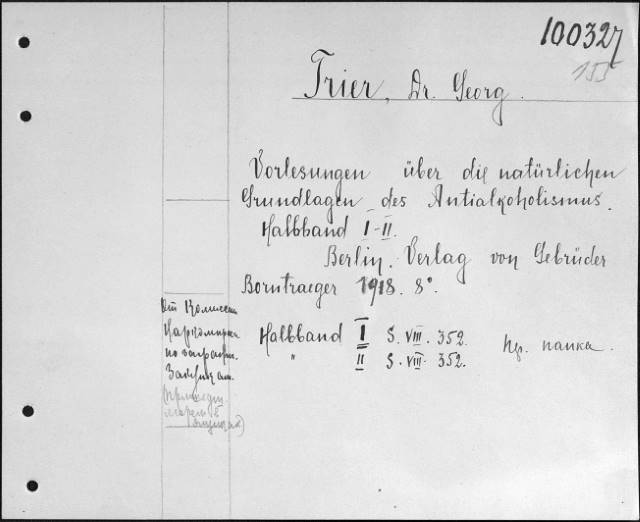 100327
153
Trier, Dr. Georg.
Vorlesungen über die natürlichen
Grundlagen des Antialkoholismus.
Halbband I-II.
Berlin. Verlag von Gebrüder
Borntraeger 1918. 8°.
Halbband I S. VIII. 352.
" II S. VIII. 352.
Кр. папка.
От Комиссии
Наркомпроса
по заграт.
Закупкам.